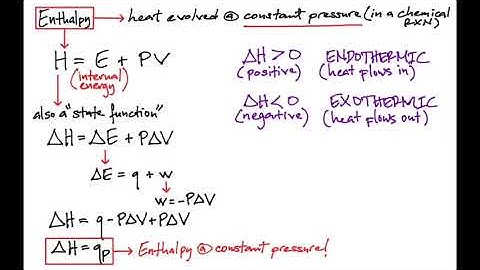 Enthalpy → heat evolved @ constant pressure (in a chemical RXN)
H = E + PV
(internal energy)
also a "state function"
ΔH = ΔE + PΔV
ΔE = q + w
w = -PΔV
ΔH = q - PΔV + PΔV
ΔH = qp → Enthalpy @ constant pressure!
ΔH > 0 ENDOTHERMIC
(positive) (heat flows in)
ΔH < 0 EXOTHERMIC
(negative) (heat flows out)